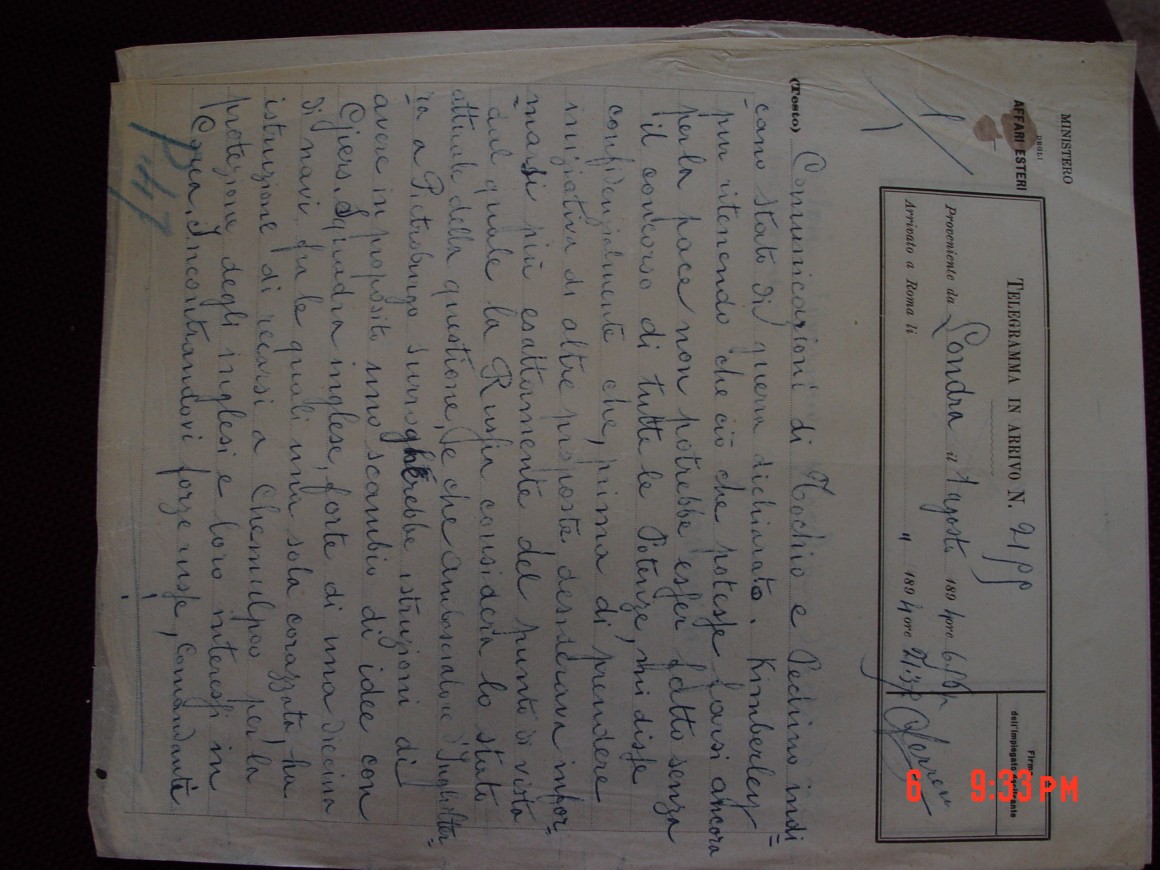 MINISTERO
DEGLI
AFFARI ESTERI
TELEGRAMMA IN ARRIVO N. 2199
Proveniente da Londra il 1 agosto 1894 ore
Arrivato a Roma li " 1894 ore
Firma
dell'impiegato
(Testo) Comunicazioni di Tochio e Pechino indi=
=cano stato di guerra dichiarato. Kimberley
pur ritenendo che ciò che potesse farsi ancora
per la pace non potrebbe esser fatto senza
il concorso di tutte le Potenze, mi disse
confidenzialmente che, prima di prendere
iniziativa di altre proposte desiderava infor=
=marsi più esattamente del punto di vista
dal quale la Russia considera lo stato
attuale della questione, e che ambasciatore d'Inghilter=
=ra a Pietroburgo surrogherebbe istruzioni di
avere in proposito uno scambio di idee con
Giers. Squadra inglese, forte di una diecina
di navi fra le quali una sola corazzata ha
istruzione di recarsi a Chemulpoo per la
protezione degli inglesi e loro interessi in
Corea. Incontrandovi forze russe, Comandante
147
6 9:33 PM